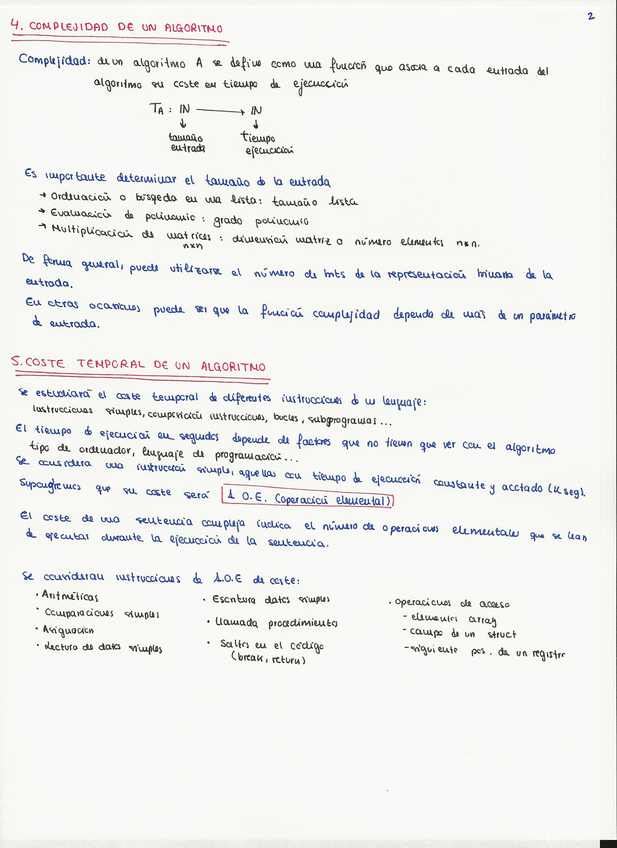 2
4. COMPLEJIDAD DE UN ALGORITMO
Complejidad: de un algoritmo A se define como una función que asocia a cada entrada del
algoritmo su coste en tiempo de ejecucción
TA : IN → IN
↓ ↓
tamaño tiempo
entrada ejecucición
Es importante determinar el tamaño de la entrada
→ Ordenación o búsqeda en una lista: tamaño lista
→ Evaluación de polinomio: grado polinomio
→ Multiplicación de matrices : dimensión matriz o número elementos n×n.
n×n
De forma general, puede utilizarse el número de bits de la representación binaria de la
entrada.
En otras ocasiones puede ser que la función complejidad dependa de más de un parámetro
de entrada.
5. COSTE TEMPORAL DE UN ALGORITMO
Se estudiará el coste temporal de diferentes instrucciones de un lenguaje:
Instrucciones simples, composición instrucciones, bucles, subprogramas...
El tiempo de ejecución en segundos depende de factores que no tienen que ver con el algoritmo
tipo de ordenador, lenguaje de programación...
Se considera una instrucción simple, aquellas con tiempo de ejecucción constante y acotado (K seg).
Supongremos que su coste será 1 O.E. (operación elemental)
El coste de una sentencia compleja indica el número de operaciones elementales que se han
de ejecutar durante la ejecucción de la sentencia.
Se consideran instrucciones de 1.O.E de coste:
· Aritméticas
· Comparaciones simples
· Asignación
· Lectura de datos simples
· Escritura datos simples
· Llamada procedimientos
· Saltos en el código
(break, return)
· Operaciones de acceso
- elementos array
- campo de un struct
- siguiente pos. de un registro